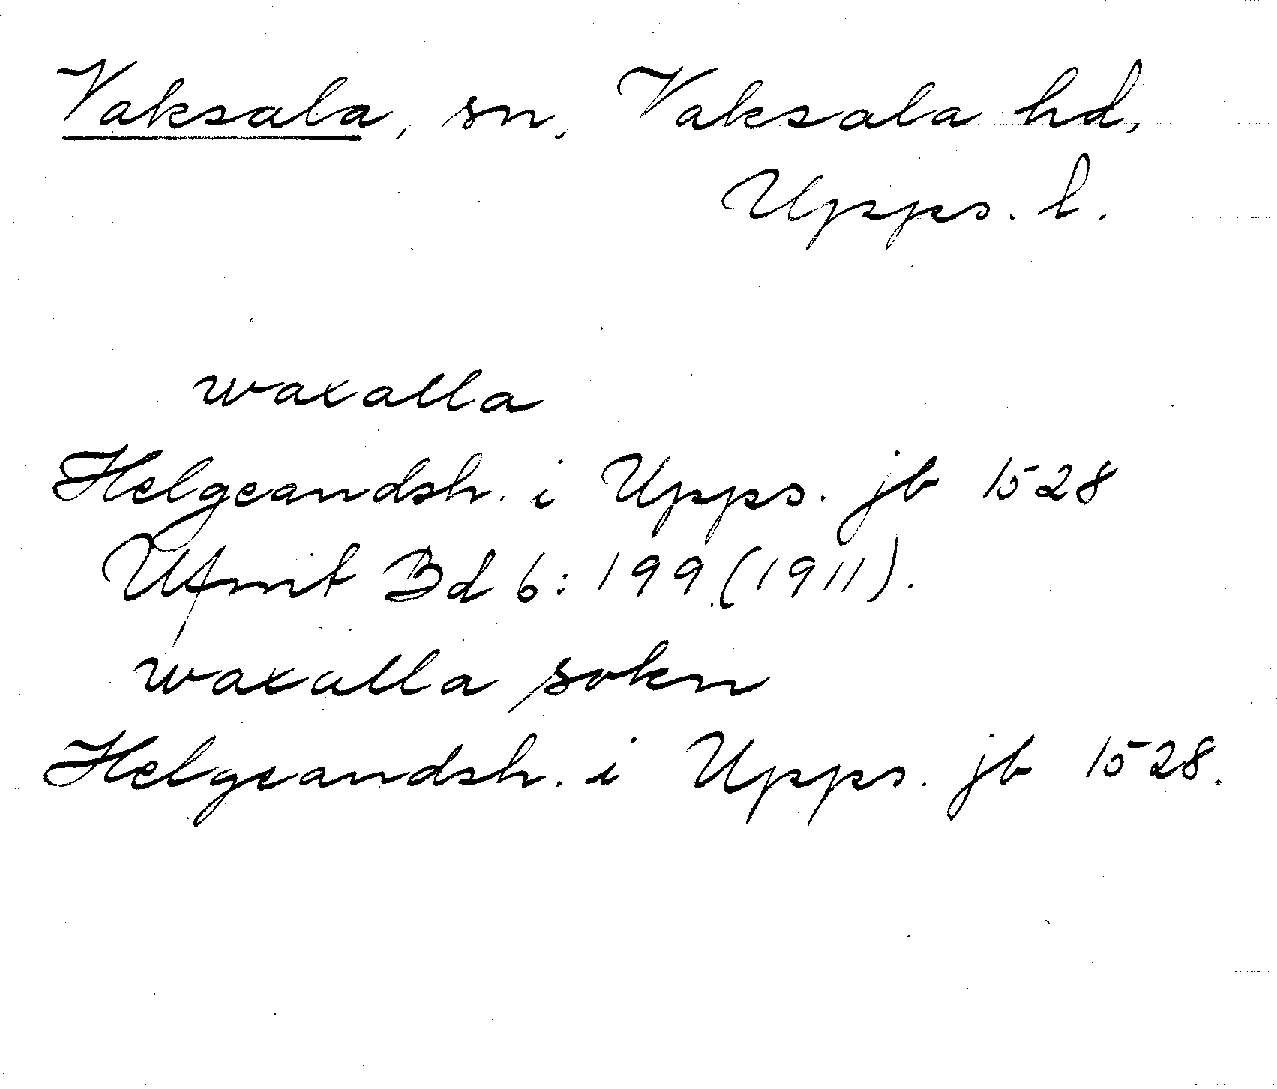 Vaksala, sn, Vaksala hd,
Upps. l.
waxalla
Helgeandsh. i Upps. jb 1528
Ufmt Bd 6: 199 (1911).
waxalla sokn
Helgeandsh. i Upps. jb 1528.